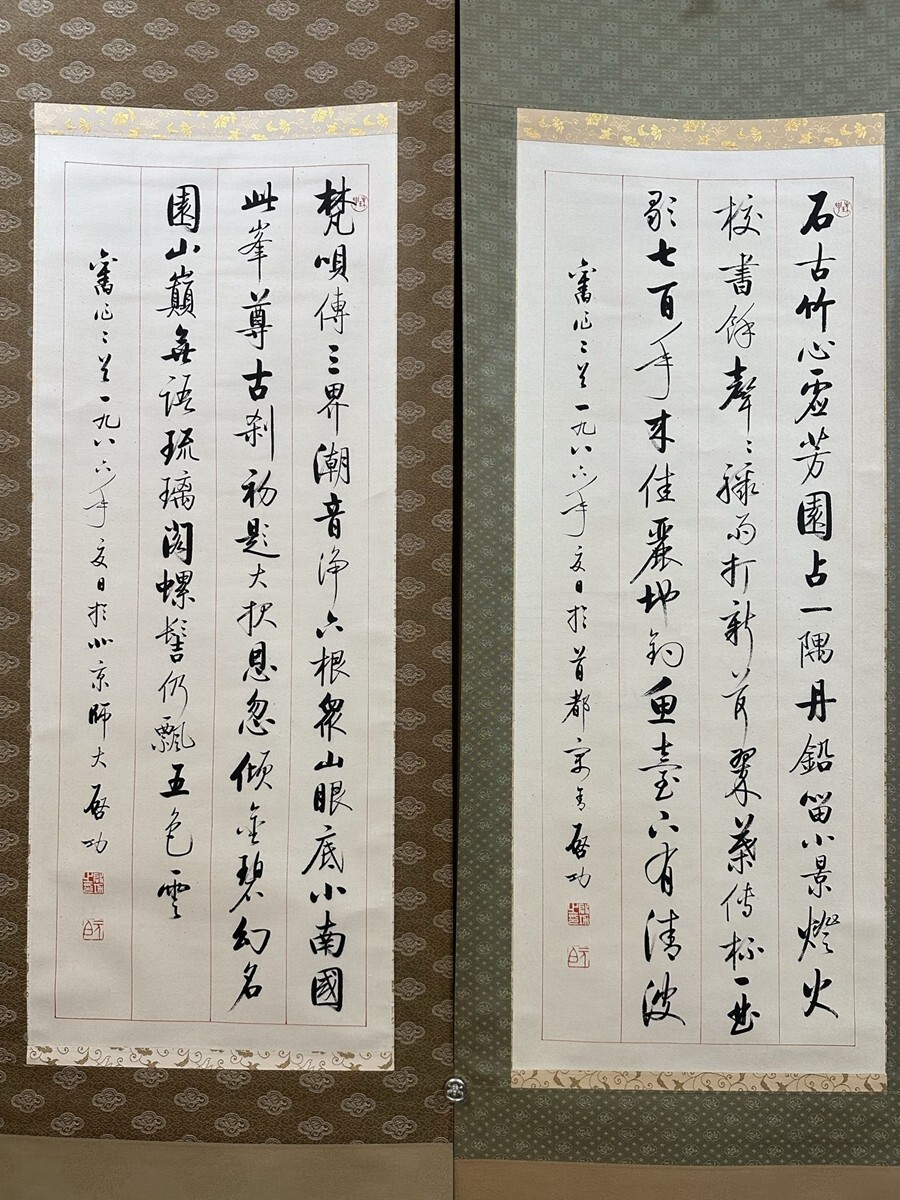 石古竹心虛芳園占一隅丹鉛留小景燈火
校書餘聲〻疎雨打新荷翠葉傳杯一曲
歌七百年來佳麗地釣魚臺下有清波
舊作二首一九八六年夏日於首都寓舍啓功
元白
梵唄傳三界潮音淨六根眾山眼底小南國
此峯尊古刹初題大报恩忽傾金碧幻名
園山巔無語琉璃閣螺髻仍飄五色雲
舊作二首一九八六年夏日於北京師大啓功
元白